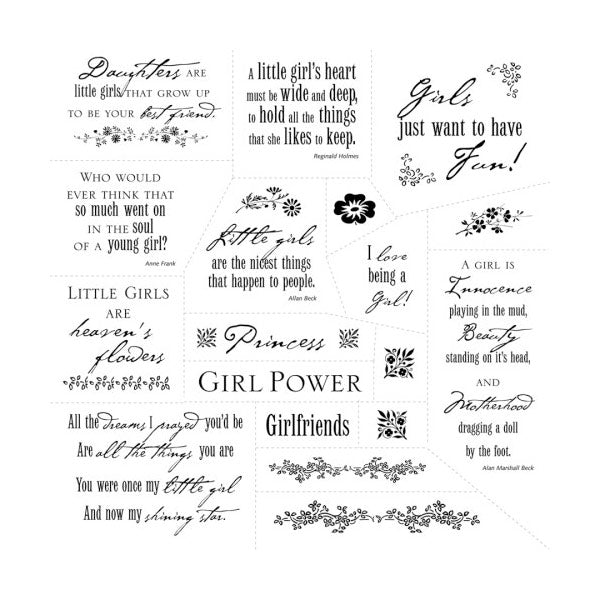 Daughters ARE
little girls THAT GROW UP
TO BE YOUR best friend.
A little girl's heart
must be wide and deep,
to hold all the things
that she likes to keep.
Reginald Holmes
Girls
just want to have
Fun!
WHO WOULD
EVER THINK THAT
so much went on
IN THE soul
OF A young girl?
Anne Frank
Little girls
are the nicest things
that happen to people.
Allan Beck
I love
being a
Girl!
A GIRL IS
Innocence
playing in the mud,
Beauty
standing on it's head,
AND
Motherhood
dragging a doll
by the foot.
Alan Marshall Beck
LITTLE GIRLS
ARE
heaven's
flowers
Princess
GIRL POWER
Girlfriends
All the dreams I prayed you'd be
Are all the things you are
You were once my little girl
And now my shining star.